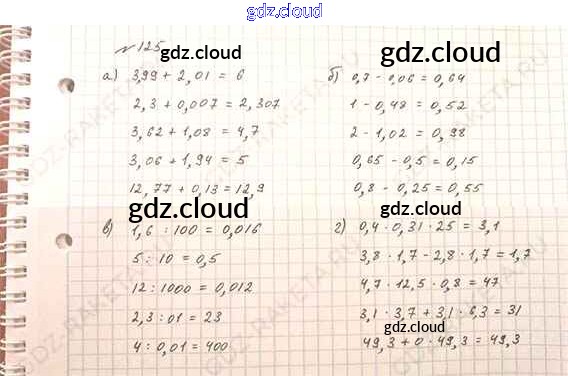 gdz.cloud
№ 125
gdz.cloud
gdz.cloud
а) 3,99 + 2,01 = 6
2,3 + 0,007 = 2,307
3,62 + 1,08 = 4,7
3,06 + 1,94 = 5
12,77 + 0,13 = 12,9
б) 0,7 - 0,06 = 0,64
1 - 0,48 = 0,52
2 - 1,02 = 0,98
0,65 - 0,5 = 0,15
0,8 - 0,25 = 0,55
gdz.cloud
gdz.cloud
в) 1,6 : 100 = 0,016
5 : 10 = 0,5
12 : 1000 = 0,012
2,3 : 01 = 23
4 : 0,01 = 400
г) 0,4 · 0,31 · 25 = 3,1
3,8 · 1,7 - 2,8 · 1,7 = 1,7
4,7 · 12,5 · 0,8 = 47
3,1 · 3,7 + 3,1 · 6,3 = 31
gdz.cloud
49,3 + 0 · 49,3 = 49,3
GDZ-RAKETA.RU